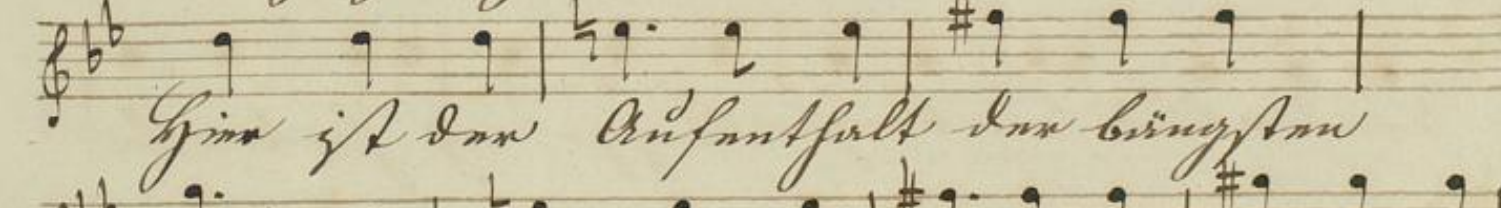 Hier ist der Aufenthalt der bängsten